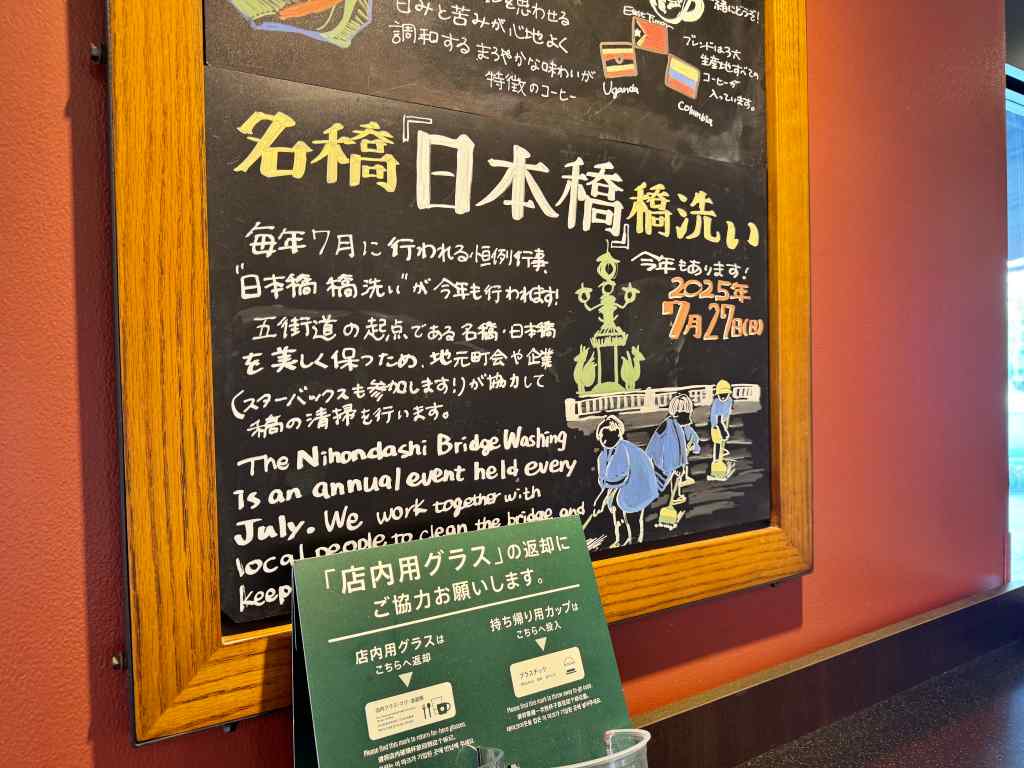 を思わせる
甘みと苦みが心地よく
調和するまろやかな味わいが
特徴のコーヒー
East Timor
一緒にどうぞ!
Uganda
Columbia
ブレンドは3大
生産地すべての
コーヒーが
入っています。
名橋『日本橋』橋洗い
毎年7月に行われる恒例行事、
"日本橋 橋洗い"が今年も行われます!
五街道の起点である名橋・日本橋
を美しく保つため、地元町会や企業
(スターバックスも参加します!)が協力して
橋の清掃を行います。
今年もあります!
2025年
7月27日(日)
The Nihondashi Bridge Washing
is an annual event held every
July. We work together with
local people to clean the bridge and
keep
「店内用グラス」の返却に
ご協力お願いします。
店内用グラスは
こちらへ返却
持ち帰り用カップは
こちらへ投入
店内グラス・マグ・食器類
プラスチック
Please find this mark to return for-here glasses.
Please find this mark to throw away to-go cups